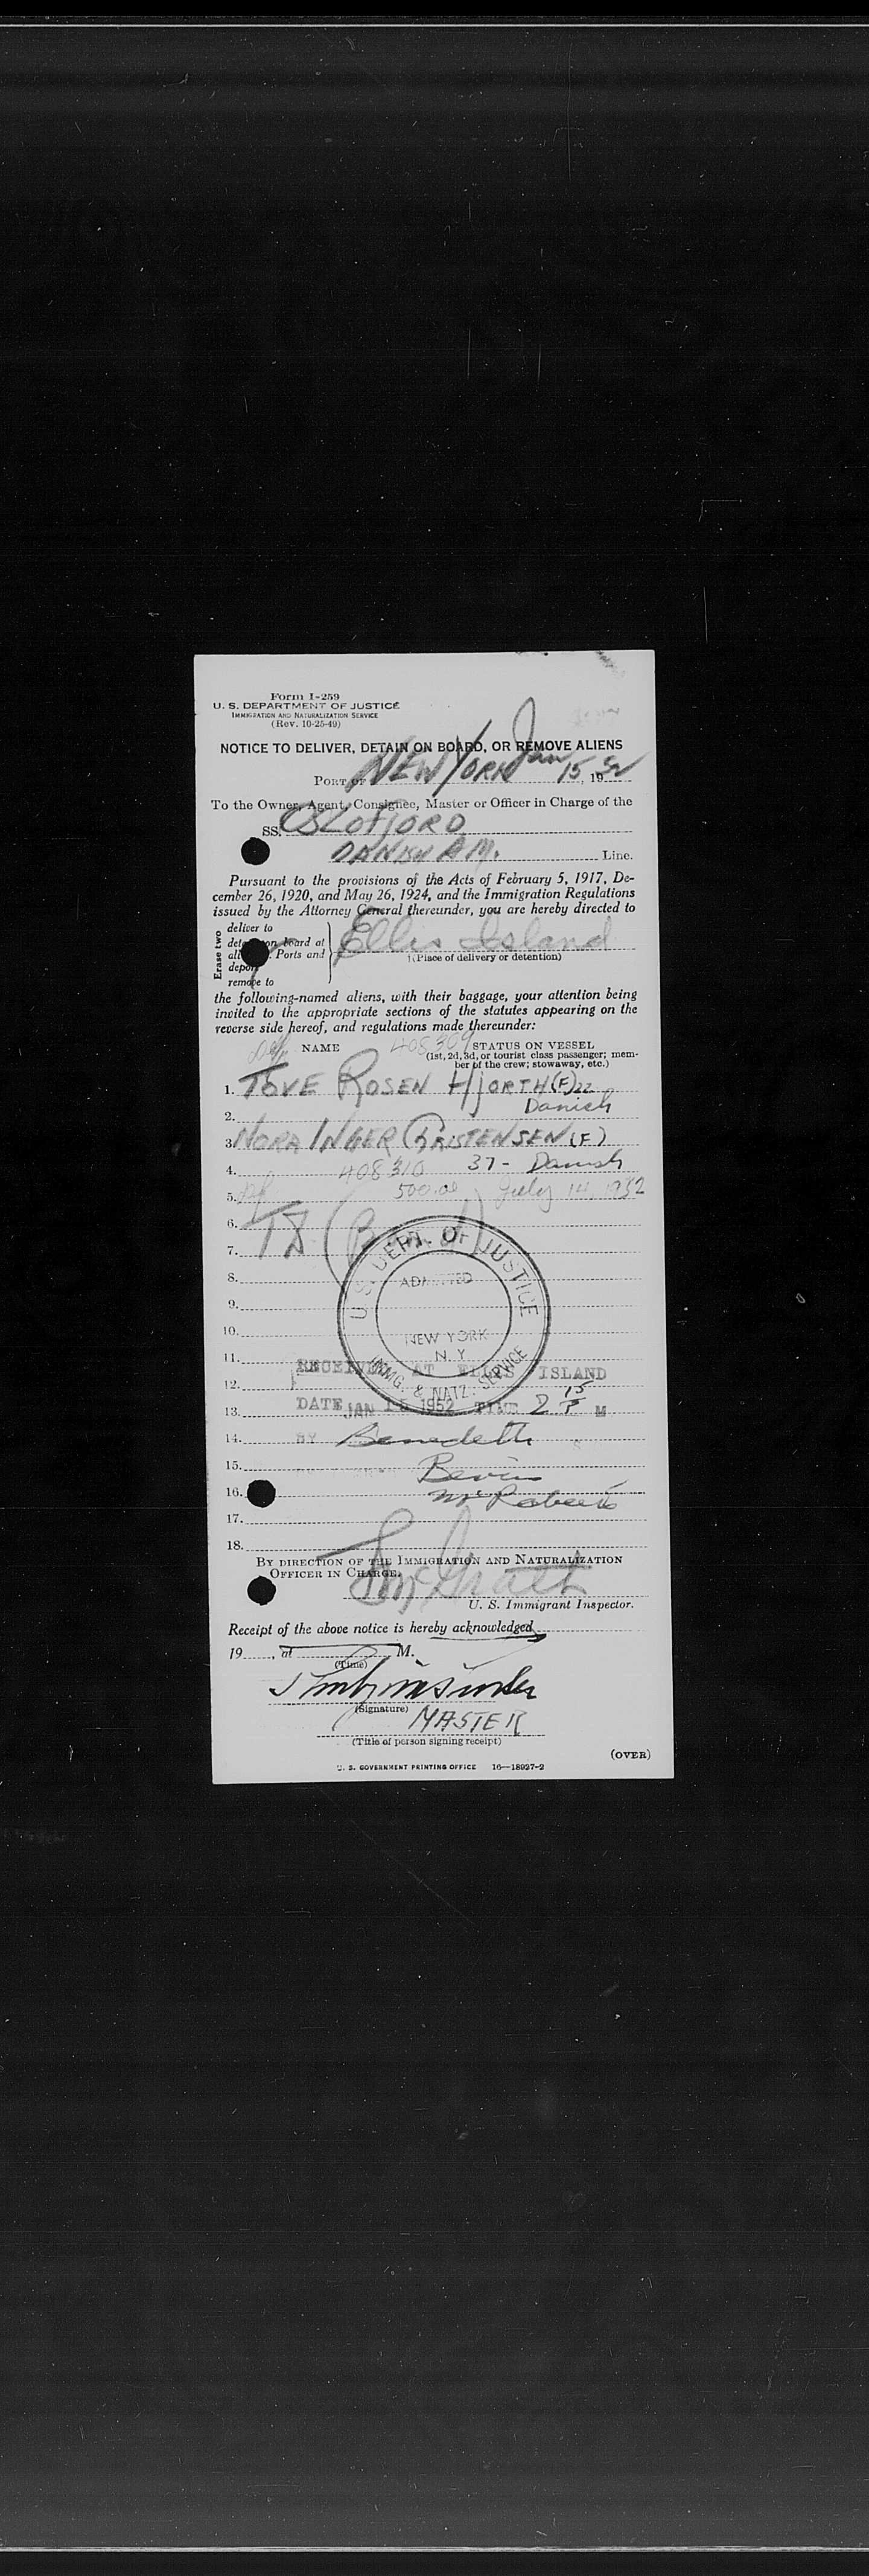 Form I-259
U. S. DEPARTMENT OF JUSTICE
IMMIGRATION AND NATURALIZATION SERVICE
(Rev. 10-25-49)
NOTICE TO DELIVER, DETAIN ON BOARD, OR REMOVE ALIENS
PORT OF NEW YORK Jan 15, 1952
To the Owner, Agent, Consignee, Master or Officer in Charge of the
SS. OSLOFJORD
AM. Line.
Pursuant to the provisions of the Acts of February 5, 1917, De-
cember 26, 1920, and May 26, 1924, and the Immigration Regulations
issued by the Attorney General thereunder, you are hereby directed to
Erase two
deliver to
on board at
Ports and
remove to
Ellis Island
(Place of delivery or detention)
the following-named aliens, with their baggage, your attention being
invited to the appropriate sections of the statutes appearing on the
reverse side hereof, and regulations made thereunder:
NAME 408309 STATUS ON VESSEL
(1st, 2d, 3d, or tourist class passenger; mem-
ber of the crew; stowaway, etc.)
1. TOVE ROSEN HJORTH (F) 22
2. Danish
3. NORA INGER KRISTENSEN (F)
4. 408310 37- Danish
5. 500.00 July 14, 1952
6.
7.
8.
9.
10.
11.
12.
13.
14.
15.
16.
17.
18.
U. S. DEPT. OF JUSTICE
ADMITTED
NEW YORK
N. Y.
IMMG. & NATZ. SERVICE
RECEIVED AT ELLIS ISLAND
DATE JAN 15 1952 TIME 2 15 P M
BY Benedetti
Bevins
McRoberts
BY DIRECTION OF THE IMMIGRATION AND NATURALIZATION
OFFICER IN CHARGE.
McGrath
U. S. Immigrant Inspector.
Receipt of the above notice is hereby acknowledged
19 , at M.
(Time)
(Signature)
MASTER
(Title of person signing receipt)
(OVER)
U. S. GOVERNMENT PRINTING OFFICE 16—18927-2